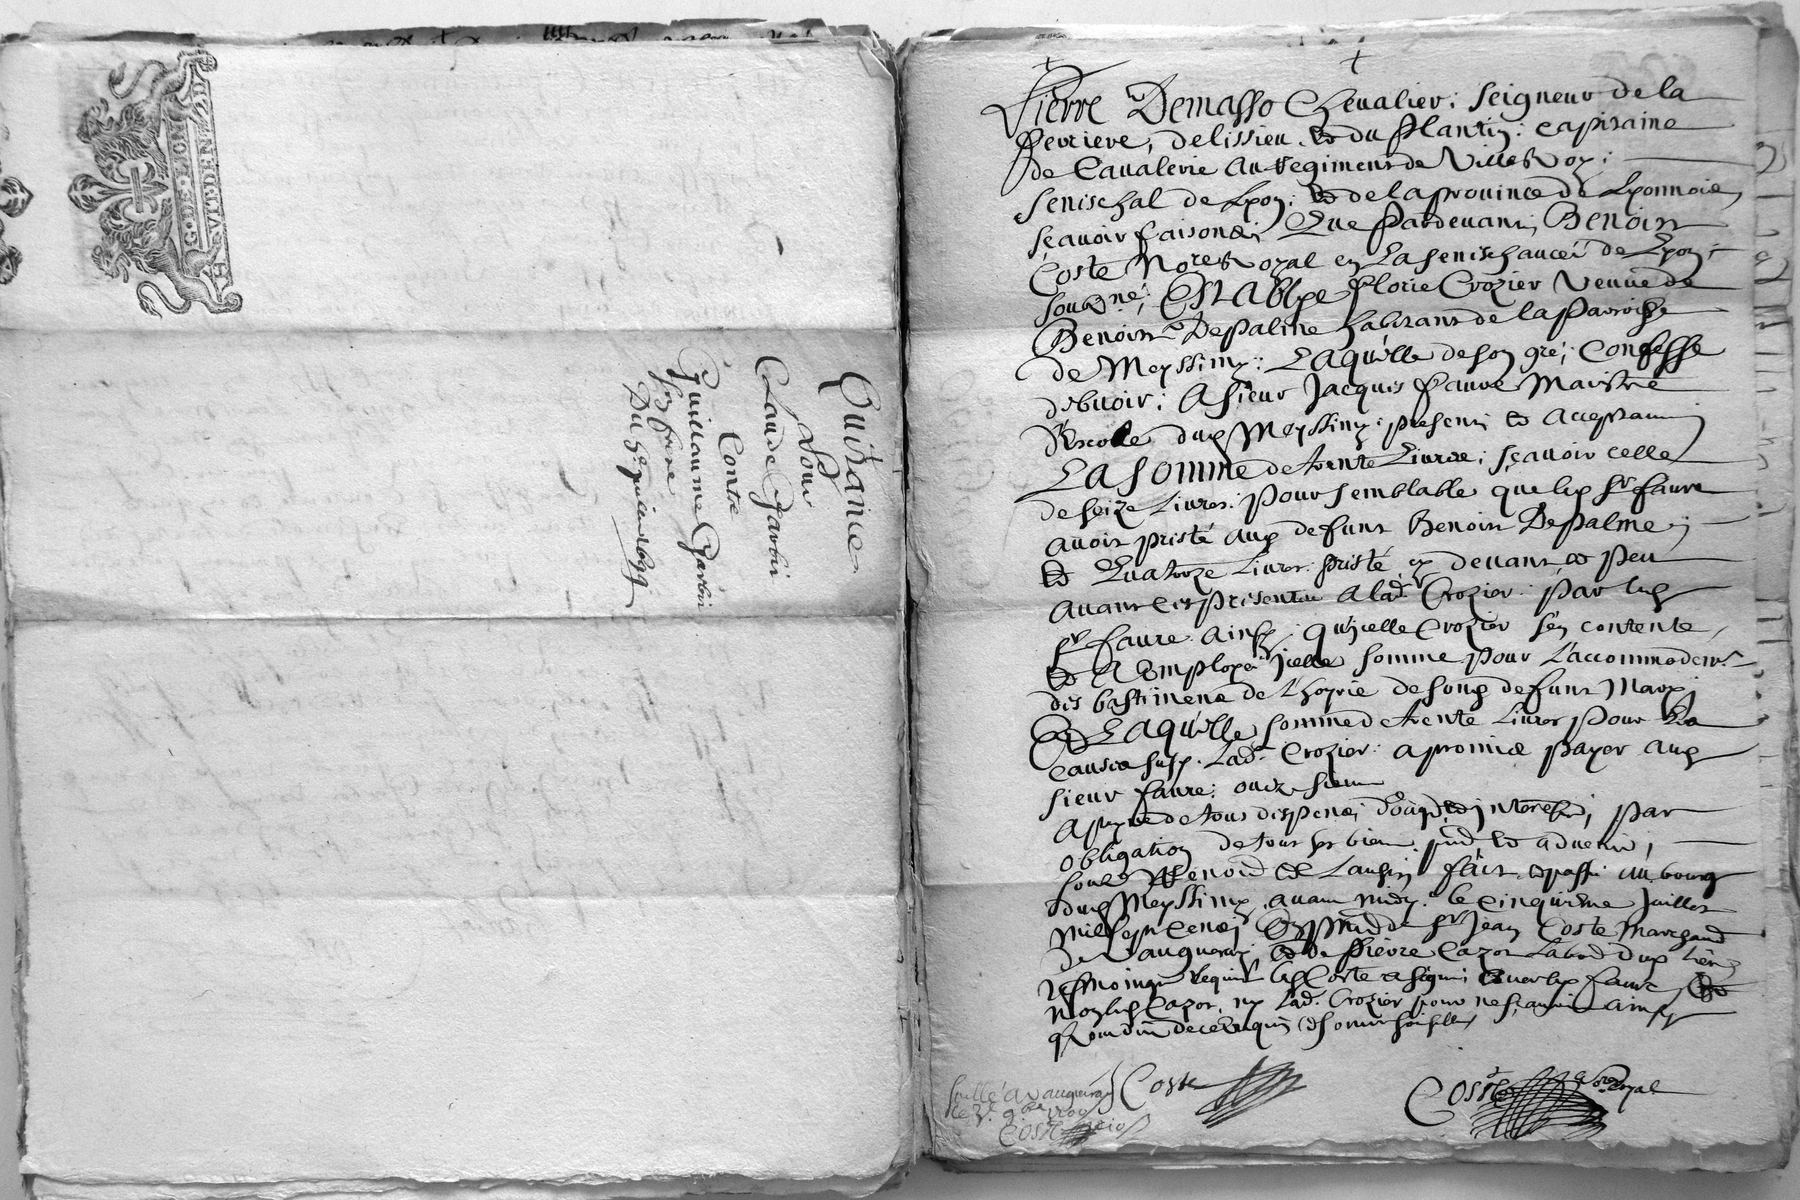 G. DE. LION
Quittance
Pour
Claude Garbir
Contre
Guillaume Garbir
son frere
Du 5e juillet 1699
Pierre Demasso Chevalier; seigneur de la
ferriere, de lissieu, et du Plantin: capitaine
de Cavalerie au Regiment de Villeroy;
senischal de Lyon; et de la province de Lyonnois
sçavoir faisons; Que Pardevant; Benoist
Coste No.re Royal en La senischaucéé de Lyon;
soubz.né; Establye florie Crozier veuve de
Benoist DePalme habitant de la Parroisse
de Meyssimy: Laquelle de son gré; Confesse
debvoir; A sieur Jacques faure Maistre
d'Escolle dud Meyssimy: present et acceptant
La somme de trente Livres; sçavoir celle
de seize Livres: pour semblable que led sr faure
avoit presté aud defunt Benoist DePalme;
et Quatorze Livres: presté cy devant et peu
avant ces presentes a lad. Crozier: par led
sr faure: ainsy qu'icelle Crozier s'en contente,
et A Employé icelle somme pour L'accommodem.t
des bastimens de L'hoyrie de sond defunt Mary;
Laquelle somme de trente Livres pour La
cause susd. Lad. Crozier: a promis payer aud
sieur faure: ou es siens
a peyne de tous despens, domages et interestz; par
obligation de tous ses biens p.nt et advenir;
soubz Renon et Clausis, fait et passé au bourg
dud Meyssimy, avant midy. le cinquiesme Juillet
mil sept cens; En p.nce de sr Jean Coste Marchand
de Vaugneray; et de Pierre Cazot Labo.r dud lieu
tesmoings requis led Coste a signé; avec led faure
non led Cazot, ny Lad. Crozier pour ne sçavoir ainsy
Coste
Coste No.re Royal
seellé a Vaugneray
le 3e 9bre 1700
Coste